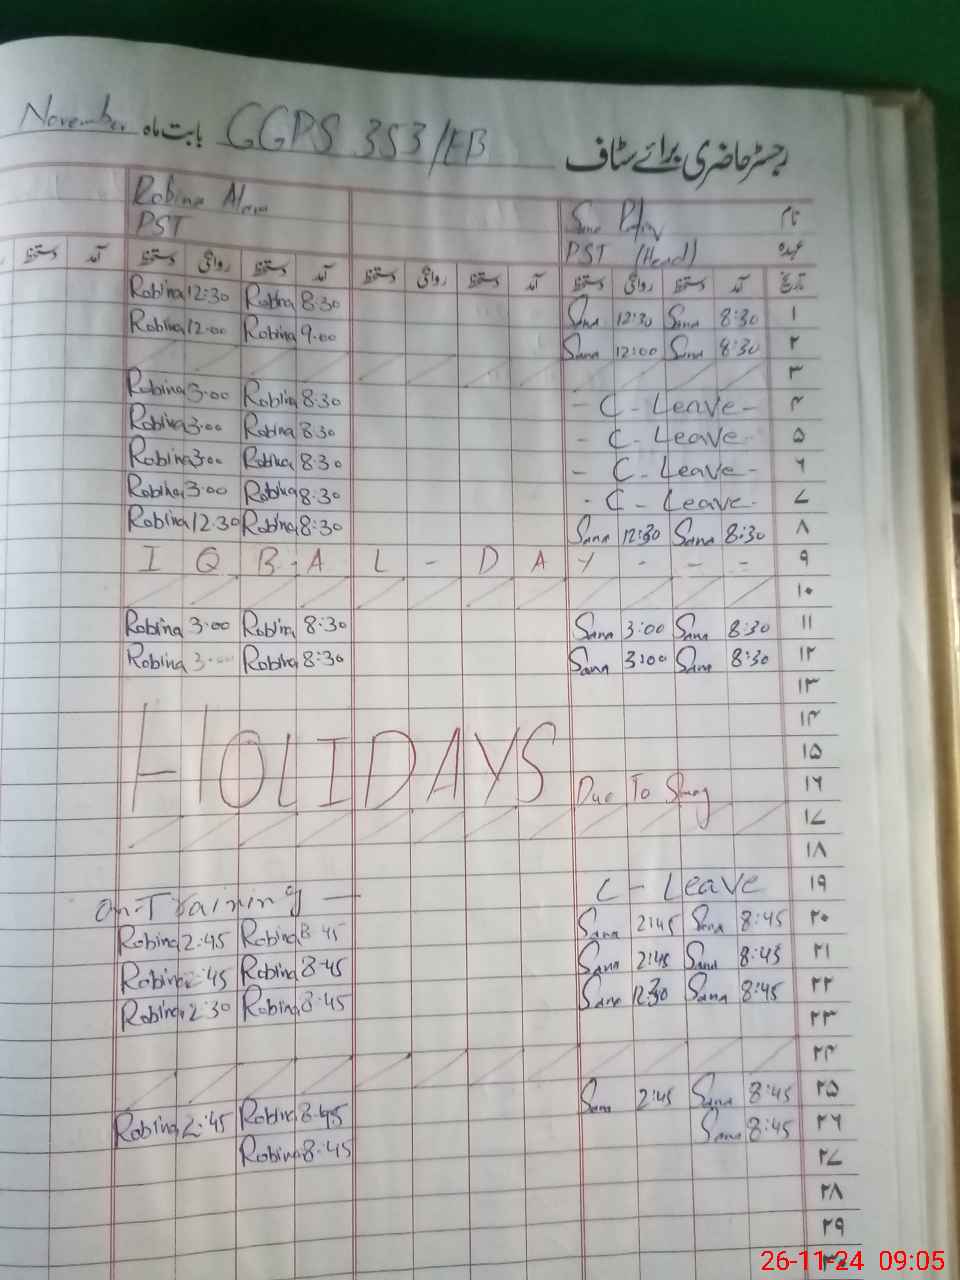 رجسٹر حاضری برائے سٹاف GGPS 353/EB بابت ماہ November
نام Sana Robina Alam
عہدہ PST (Head) PST
تاریخ آمد دستخط روانگی دستخط آمد دستخط روانگی دستخط آمد دستخط روانگی دستخط آمد دستخط
۱ 8:30 Sana 12:30 Sana 8:30 Robina 12:30 Robina
۲ 8:30 Sana 12:00 Sana 9:00 Robina 12:00 Robina
۳
۴ - C - Leave - 8:30 Robina 3:00 Robina
۵ - C - Leave - 8:30 Robina 3:00 Robina
۶ - C - Leave - 8:30 Robina 3:00 Robina
۷ - C - Leave - 8:30 Robina 3:00 Robina
۸ 8:30 Sana 12:30 Sana 8:30 Robina 12:30 Robina
۹ I Q B A L - D A Y - - -
۱۰
۱۱ 8:30 Sana 3:00 Sana 8:30 Robina 3:00 Robina
۱۲ 8:30 Sana 3:00 Sana 8:30 Robina 3:00 Robina
۱۳
۱۴
۱۵
HOLIDAYS
۱۶ Due To Smog
۱۷
۱۸
۱۹ C - Leave On-Training —
۲۰ 8:45 Sana 2:45 Sana 8:45 Robina 2:45 Robina
۲۱ 8:45 Sana 2:45 Sana 8:45 Robina 2:45 Robina
۲۲ 8:45 Sana 12:30 Sana 8:45 Robina 2:30 Robina
۲۳
۲۴
۲۵ 8:45 Sana 2:45 Sana 8:45 Robina 2:45 Robina
۲۶ 8:45 Sana 8:45 Robina
۲۷
۲۸
۲۹
۳۰
26-11-24 09:05